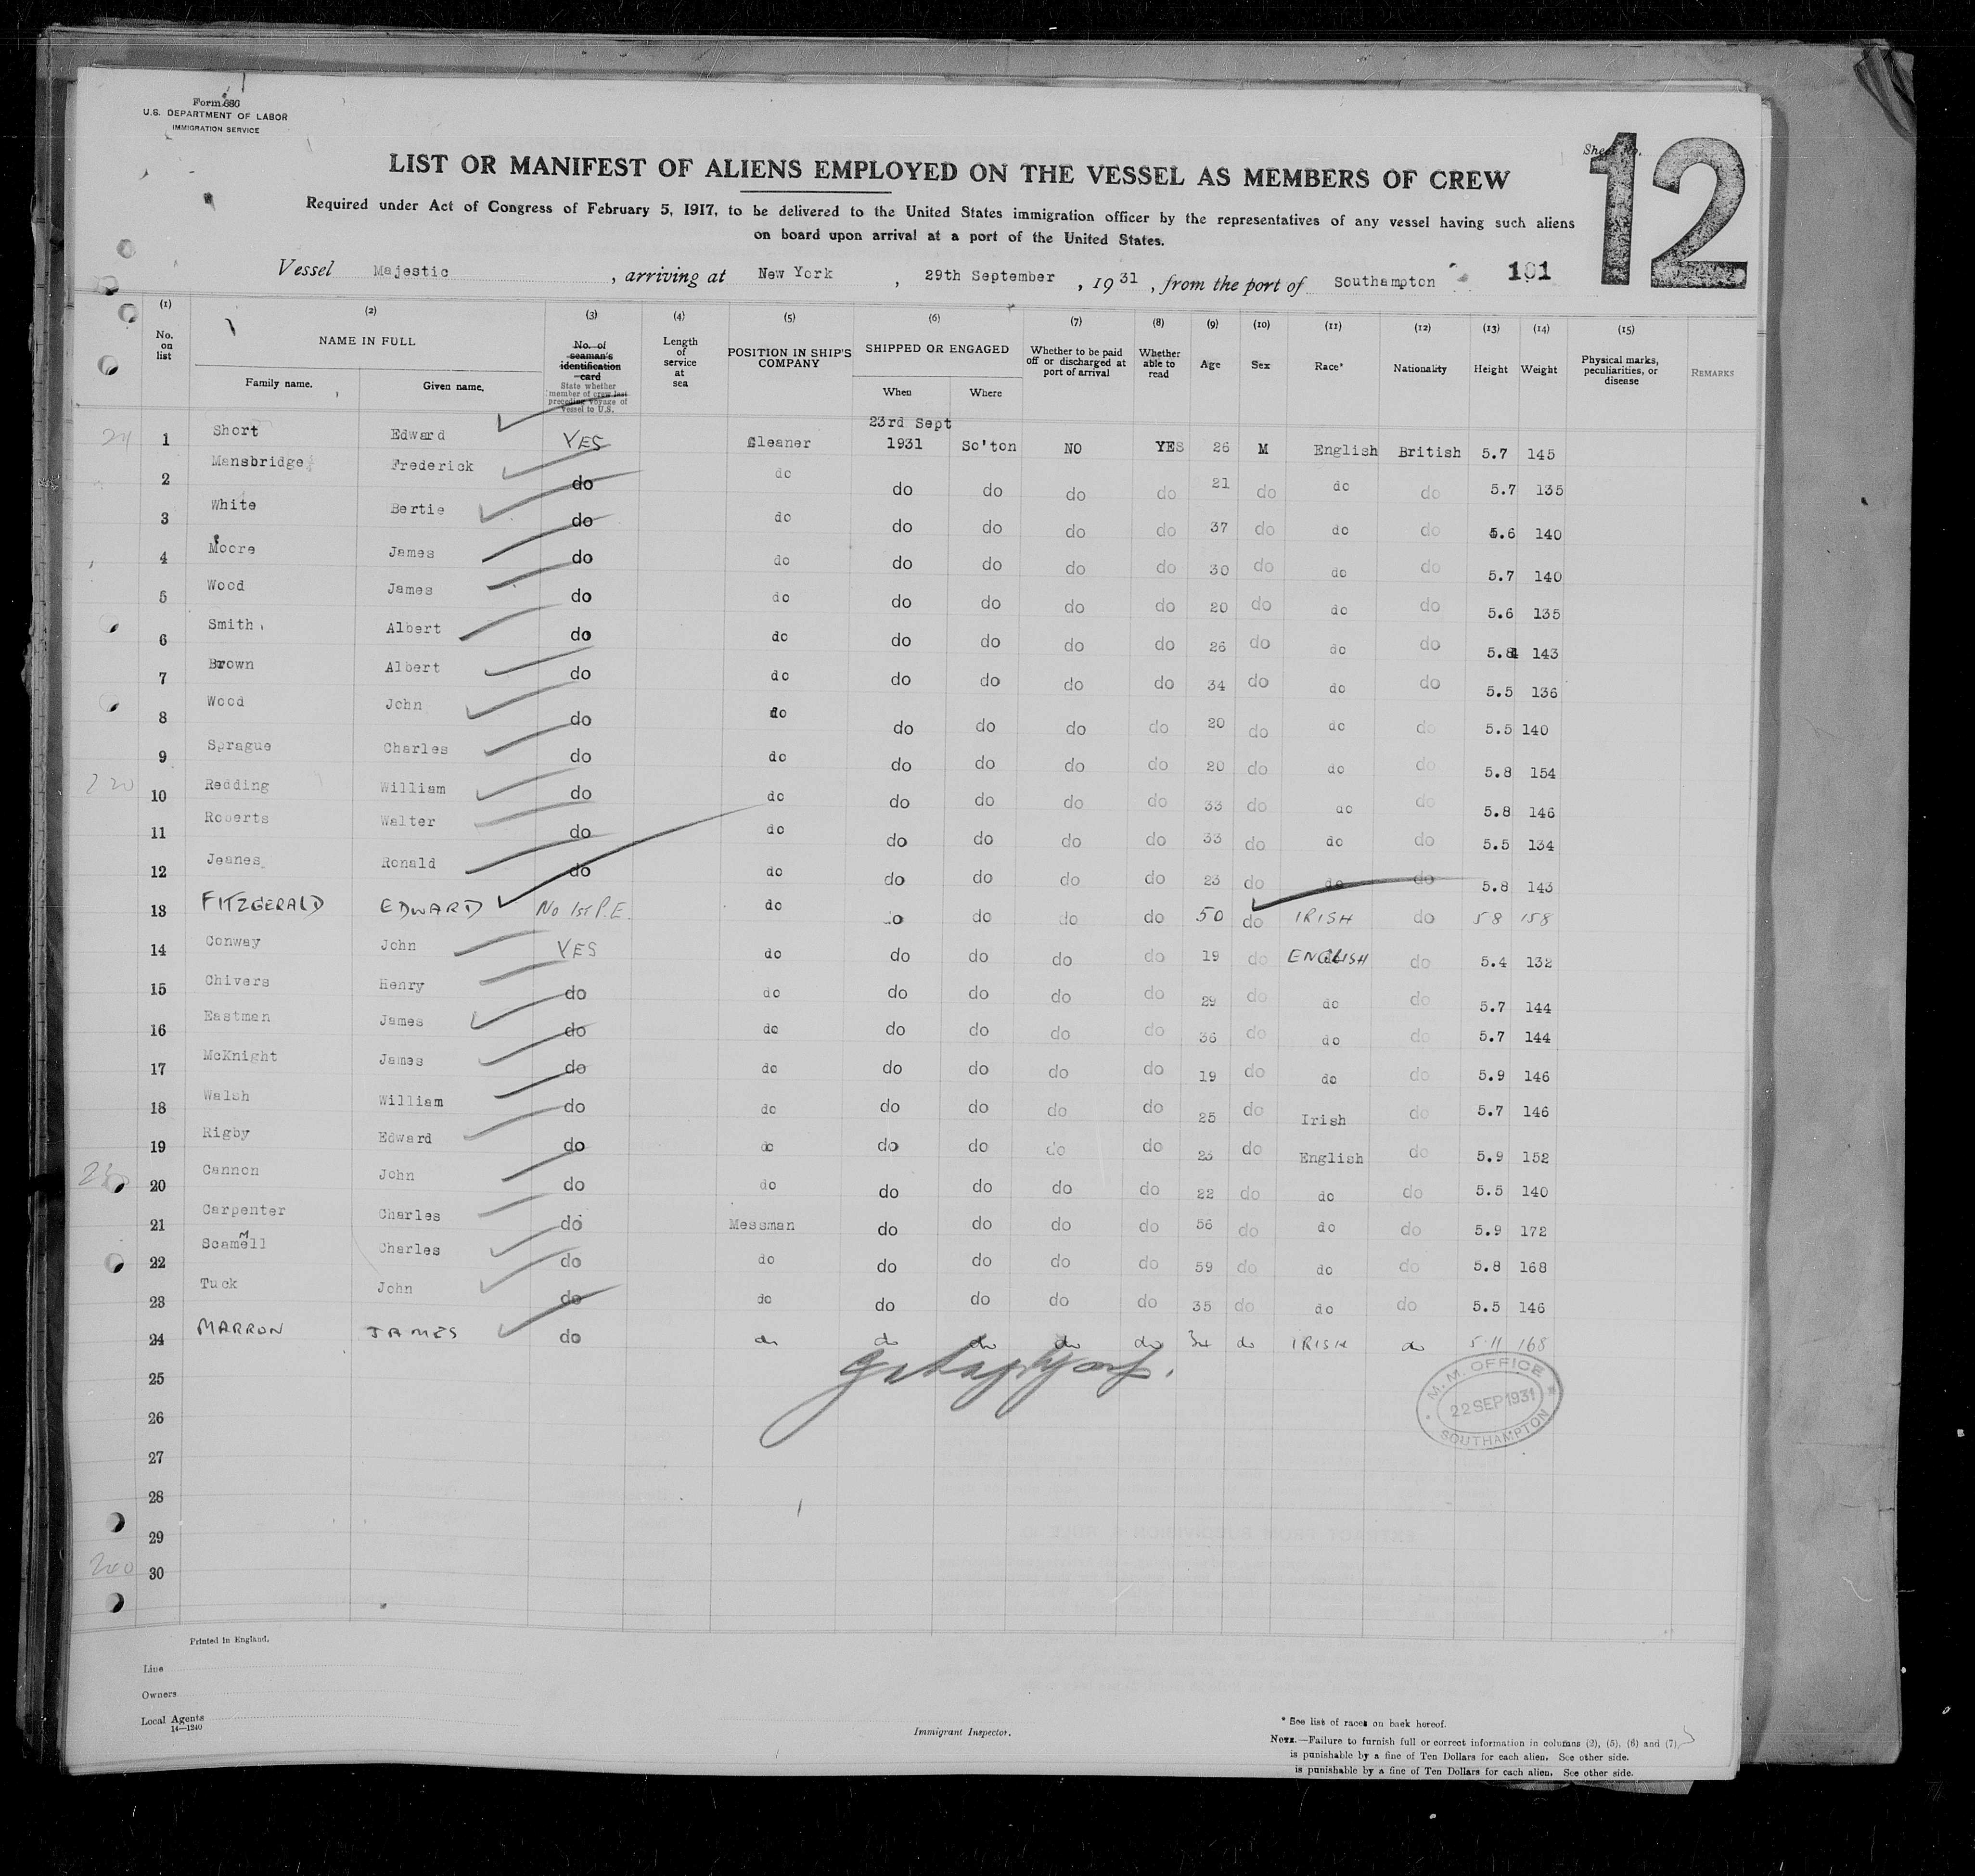 Form 686
U.S. DEPARTMENT OF LABOR
IMMIGRATION SERVICE
Sheet No.
12
LIST OR MANIFEST OF ALIENS EMPLOYED ON THE VESSEL AS MEMBERS OF CREW
Required under Act of Congress of February 5, 1917, to be delivered to the United States immigration officer by the representatives of any vessel having such aliens
on board upon arrival at a port of the United States.
Vessel Majestic, arriving at New York, 29th September, 1931, from the port of Southampton 101
(1) (2) (3) (4) (5) (6) (7) (8) (9) (10) (11) (12) (13) (14) (15)
No. on list NAME IN FULL Family name. Given name. No. of seaman's identification card State whether member of crew last preceding voyage of Vessel to U.S. Length of service at sea POSITION IN SHIP'S COMPANY SHIPPED OR ENGAGED When Where Whether to be paid off or discharged at port of arrival Whether able to read Age Sex Race* Nationality Height Weight Physical marks, peculiarities, or disease REMARKS
1 Short Edward YES Cleaner 23rd Sept 1931 So'ton NO YES 26 M English British 5.7 145
2 Mansbridge Frederick do do do do do do 21 do do do 5.7 135
3 White Bertie do do do do do do 37 do do do 5.6 140
4 Moore James do do do do do do 30 do do do 5.7 140
5 Wood James do do do do do do 20 do do do 5.6 135
6 Smith Albert do do do do do do 26 do do do 5.8 143
7 Brown Albert do do do do do do 34 do do do 5.5 136
8 Wood John do do do do do do 20 do do do 5.5 140
9 Sprague Charles do do do do do do 20 do do do 5.8 154
220
10 Redding William do do do do do do 33 do do do 5.8 146
11 Roberts Walter do do do do do do 33 do do do 5.5 134
12 Jeanes Ronald do do do do do do 23 do do do 5.8 143
13 FITZGERALD EDWARD No 1st P.E. do do do do do 50 do IRISH do 5 8 158
14 Conway John YES do do do do do 19 do ENGLISH do 5.4 132
15 Chivers Henry do do do do do do 29 do do do 5.7 144
16 Eastman James do do do do do do 36 do do do 5.7 144
17 McKnight James do do do do do do 19 do do do 5.9 146
18 Walsh William do do do do do do 25 do Irish do 5.7 146
19 Rigby Edward do do do do do do 23 do English do 5.9 152
20 Cannon John do do do do do do 22 do do do 5.5 140
21 Carpenter Charles do Messman do do do do 56 do do do 5.9 172
22 Scammell Charles do do do do do do 59 do do do 5.8 168
23 Tuck John do do do do do do 35 do do do 5.5 146
24 MARRON JAMES do do do do do do 34 do IRISH do 5.11 168
25
26
27
28
29
240
30
M.M. OFFICE
22 SEP 1931
SOUTHAMPTON
Printed in England.
Line
Owners
Local Agents
14—1240
Immigrant Inspector.
* See list of races on back hereof.
NOTE.—Failure to furnish full or correct information in columns (2), (5), (6) and (7)
is punishable by a fine of Ten Dollars for each alien. See other side.
is punishable by a fine of Ten Dollars for each alien. See other side.